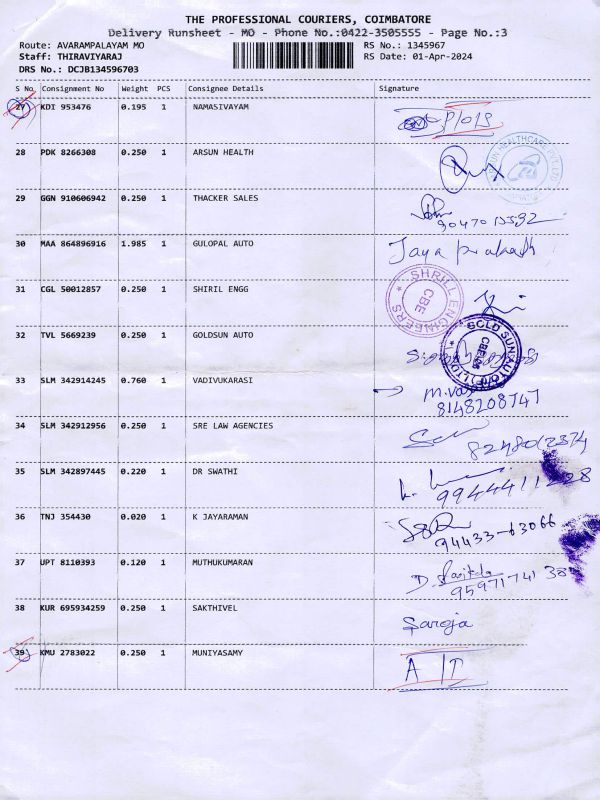 THE PROFESSIONAL COURIERS, COIMBATORE
Delivery Runsheet - MO - Phone No.:0422-3505555 - Page No.:3
Route: AVARAMPALAYAM MO RS No.: 1345967
Staff: THIRAVIYARAJ RS Date: 01-Apr-2024
DRS No.: DCJB134596703
S No. Consignment No Weight PCS Consignee Details Signature
27 KDI 953476 0.195 1 NAMASIVAYAM
28 PDK 8266308 0.250 1 ARSUN HEALTH
29 GGN 910606942 0.250 1 THACKER SALES
30 MAA 864896916 1.985 1 GULOPAL AUTO Jaya prakash
31 CGL 50012857 0.250 1 SHIRIL ENGG SHRILL ENGINEERS CBE
32 TVL 5669239 0.250 1 GOLDSUN AUTO
33 SLM 342914245 0.760 1 VADIVUKARASI
8148208747
34 SLM 342912956 0.250 1 SRE LAW AGENCIES
35 SLM 342897445 0.220 1 DR SWATHI
36 TNJ 354430 0.020 1 K JAYARAMAN
94433-63066
37 UPT 8110393 0.120 1 MUTHUKUMARAN
38 KUR 695934259 0.250 1 SAKTHIVEL Saroja
39 KMU 2783022 0.250 1 MUNIYASAMY